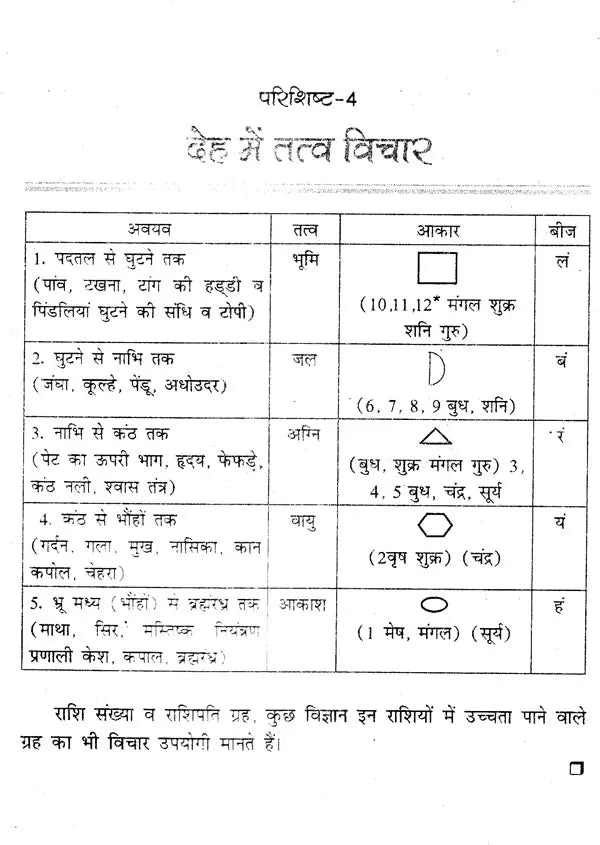 परिशिष्ट-4
देह में तत्व विचार
अवयव तत्व आकार बीज
1. पदतल से घुटने तक
(पांव, टखना, टांग की हड्डी व
पिंडलियां घुटने की संधि व टोपी)
भूमि
(10,11,12* मंगल शुक्र
शनि गुरु)
लं
2. घुटने से नाभि तक
(जंघा, कूल्हे, पेंडू, अधोउदर)
जल
(6, 7, 8, 9 बुध, शनि)
बं
3. नाभि से कंठ तक
(पेट का ऊपरी भाग, हृदय, फेफड़े,
कंठ नली, श्वास तंत्र)
अग्नि
(बुध, शुक्र मंगल गुरु) 3,
4, 5 बुध, चंद्र, सूर्य
रं
4. कंठ से भौंहों तक
(गर्दन, गला, मुख, नासिका, कान
कपोल, चेहरा)
वायु
(2वृष शुक्र) (चंद्र)
यं
5. भ्रू मध्य (भौंहों) से ब्रह्मरंध्र तक
(माथा, सिर, मस्तिष्क नियंत्रण
प्रणाली केश, कपाल, ब्रह्मरंध्र)
आकाश
(1 मेष, मंगल) (सूर्य)
हं
राशि संख्या व राशिपति ग्रह, कुछ विज्ञान इन राशियों में उच्चता पाने वाले
ग्रह का भी विचार उपयोगी मानते हैं।